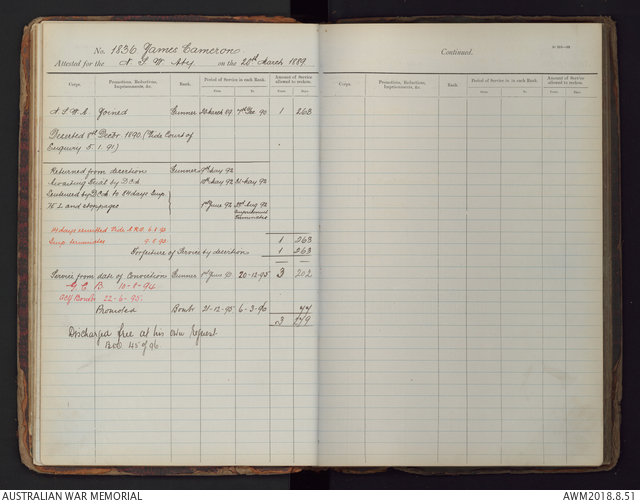 No. 1836 James Cameron
Attested for the N S W Aty on the 20th March 1889
Corps. Promotions, Reductions, Imprisonments, &c. Rank. Period of Service in each Rank. Amount of Service allowed to reckon.
From To Years Days
N.S.W.A. Joined Gunner 20 March 89 7th Dec 90 1 263
Deserted 8th Decbr 1890 (Vide Court of
Enquiry 5.1.91)
Returned from desertion Gunner 17th May 92
Awaiting Trial by DCM 18th May 92 31 May 92
Sentenced by DCM to 84 days Imp.
H L and stoppages 1st June 92
Imprisonment
terminates
14 days remitted Vide
Imp. terminates
1 263
Forfeiture of Service by desertions 1 263
Service from date of Conviction Gunner 1st June 92 20-12-95 3 202
G C B 10-1-94
Bombr 22-6-95
Promoted Bombr 21-12-95 6-3-96 77
3 279
Discharged free at his own request
45 of 96
Continued.
Corps. Promotions, Reductions, Imprisonments, &c. Rank Period of Service in each Rank. Amount of Service allowed to reckon.
From To Years Days
AUSTRALIAN WAR MEMORIAL
AWM2018.8.51